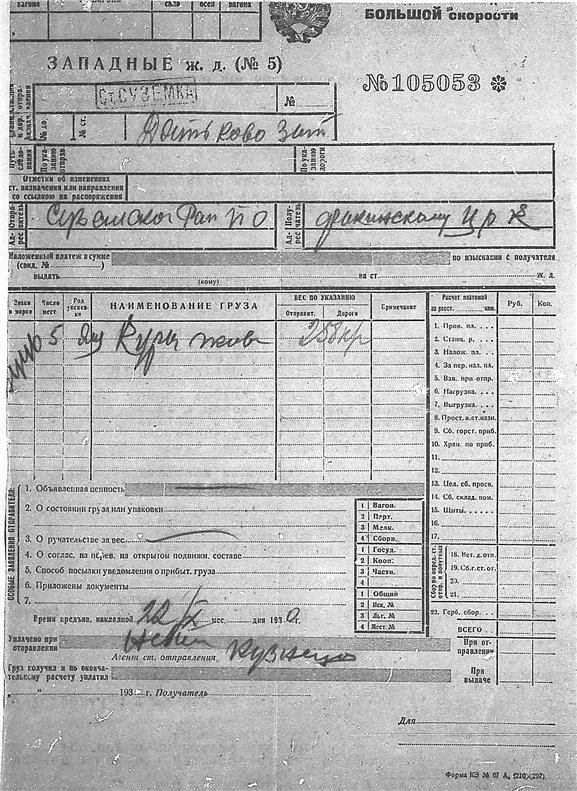 вагона
сило
осей
вагона
БОЛЬШОЙ скорости
ЗАПАДНЫЕ ж. д. (№ 5)
№ 105053 ✻
Ст. СУЗЕМКА
№
№ до.
№ ст.
Дятьково Зап
Путь следо-
вания
По ука-
занию
отправ.
По ука-
занию
дороги
Отметки об изменениях
ст. назначения или направления
со ссылкою на распоряжения
Ад- Отпра-
рес витель
Рай ПО
Ад- Полу-
рес чатель
Наложенный платеж в сумме
по взысканию с получателя
(свид. № )
выдать
(кому)
на ст.
ж. д.
Знаки и марки
Число мест
Род упаков-
ки
НАИМЕНОВАНИЕ ГРУЗА
ВЕС ПО УКАЗАНИЮ
Отправит.
Дороги
Примечание
Расчет платежей
за расст. км.
Руб.
Коп.
5 Ящ Куры
1. Пров. пл.
2. Станц. р.
3. Налож. пл.
4. За пер. нал. пл.
5. Взв. при отпр.
6. Нагрузка.
7. Выгрузка.
8. Прост. в.ст.назн.
9. Сб. горсг. приб.
10. Хран. по приб.
11.
12.
13. Цел. сб. просв.
14. Сб. склад. пом.
15. Щиты.
16.
17.
ОСОБЫЕ ЗАЯВЛЕНИЯ ОТПРАВИТЕЛЯ:
1. Объявленная ценность
2. О состоянии груза или упаковки
3. О ручательстве за вес
4. О соглас. на перев. на открытом подвижн. составе
5. Способ посылки уведомления о прибыт. груза
6. Приложены документы
7.
1 Вагон.
2 Парт.
3 Мелк.
4 Сборн.
1 Госуд.
2 Кооп.
3 Частн.
4
1 Общий
2 Иск. №
3 Льг. №
4 Мест. №
18. Вет. д. отп.
19. Сб. г. ст. от.
20.
21.
22. Герб. сбор.
ВСЕГО
При от-
правлении
При
выдаче
Время предъяв. накладной 22/X мес. дня 193 г.
Уплачено при
отправлении
Агент ст. отправления
Груз получил и по оконча-
тельному расчету уплатил
„ “ 193 г. Получатель
Для
Форма КЭ № 67 А, (210×297)